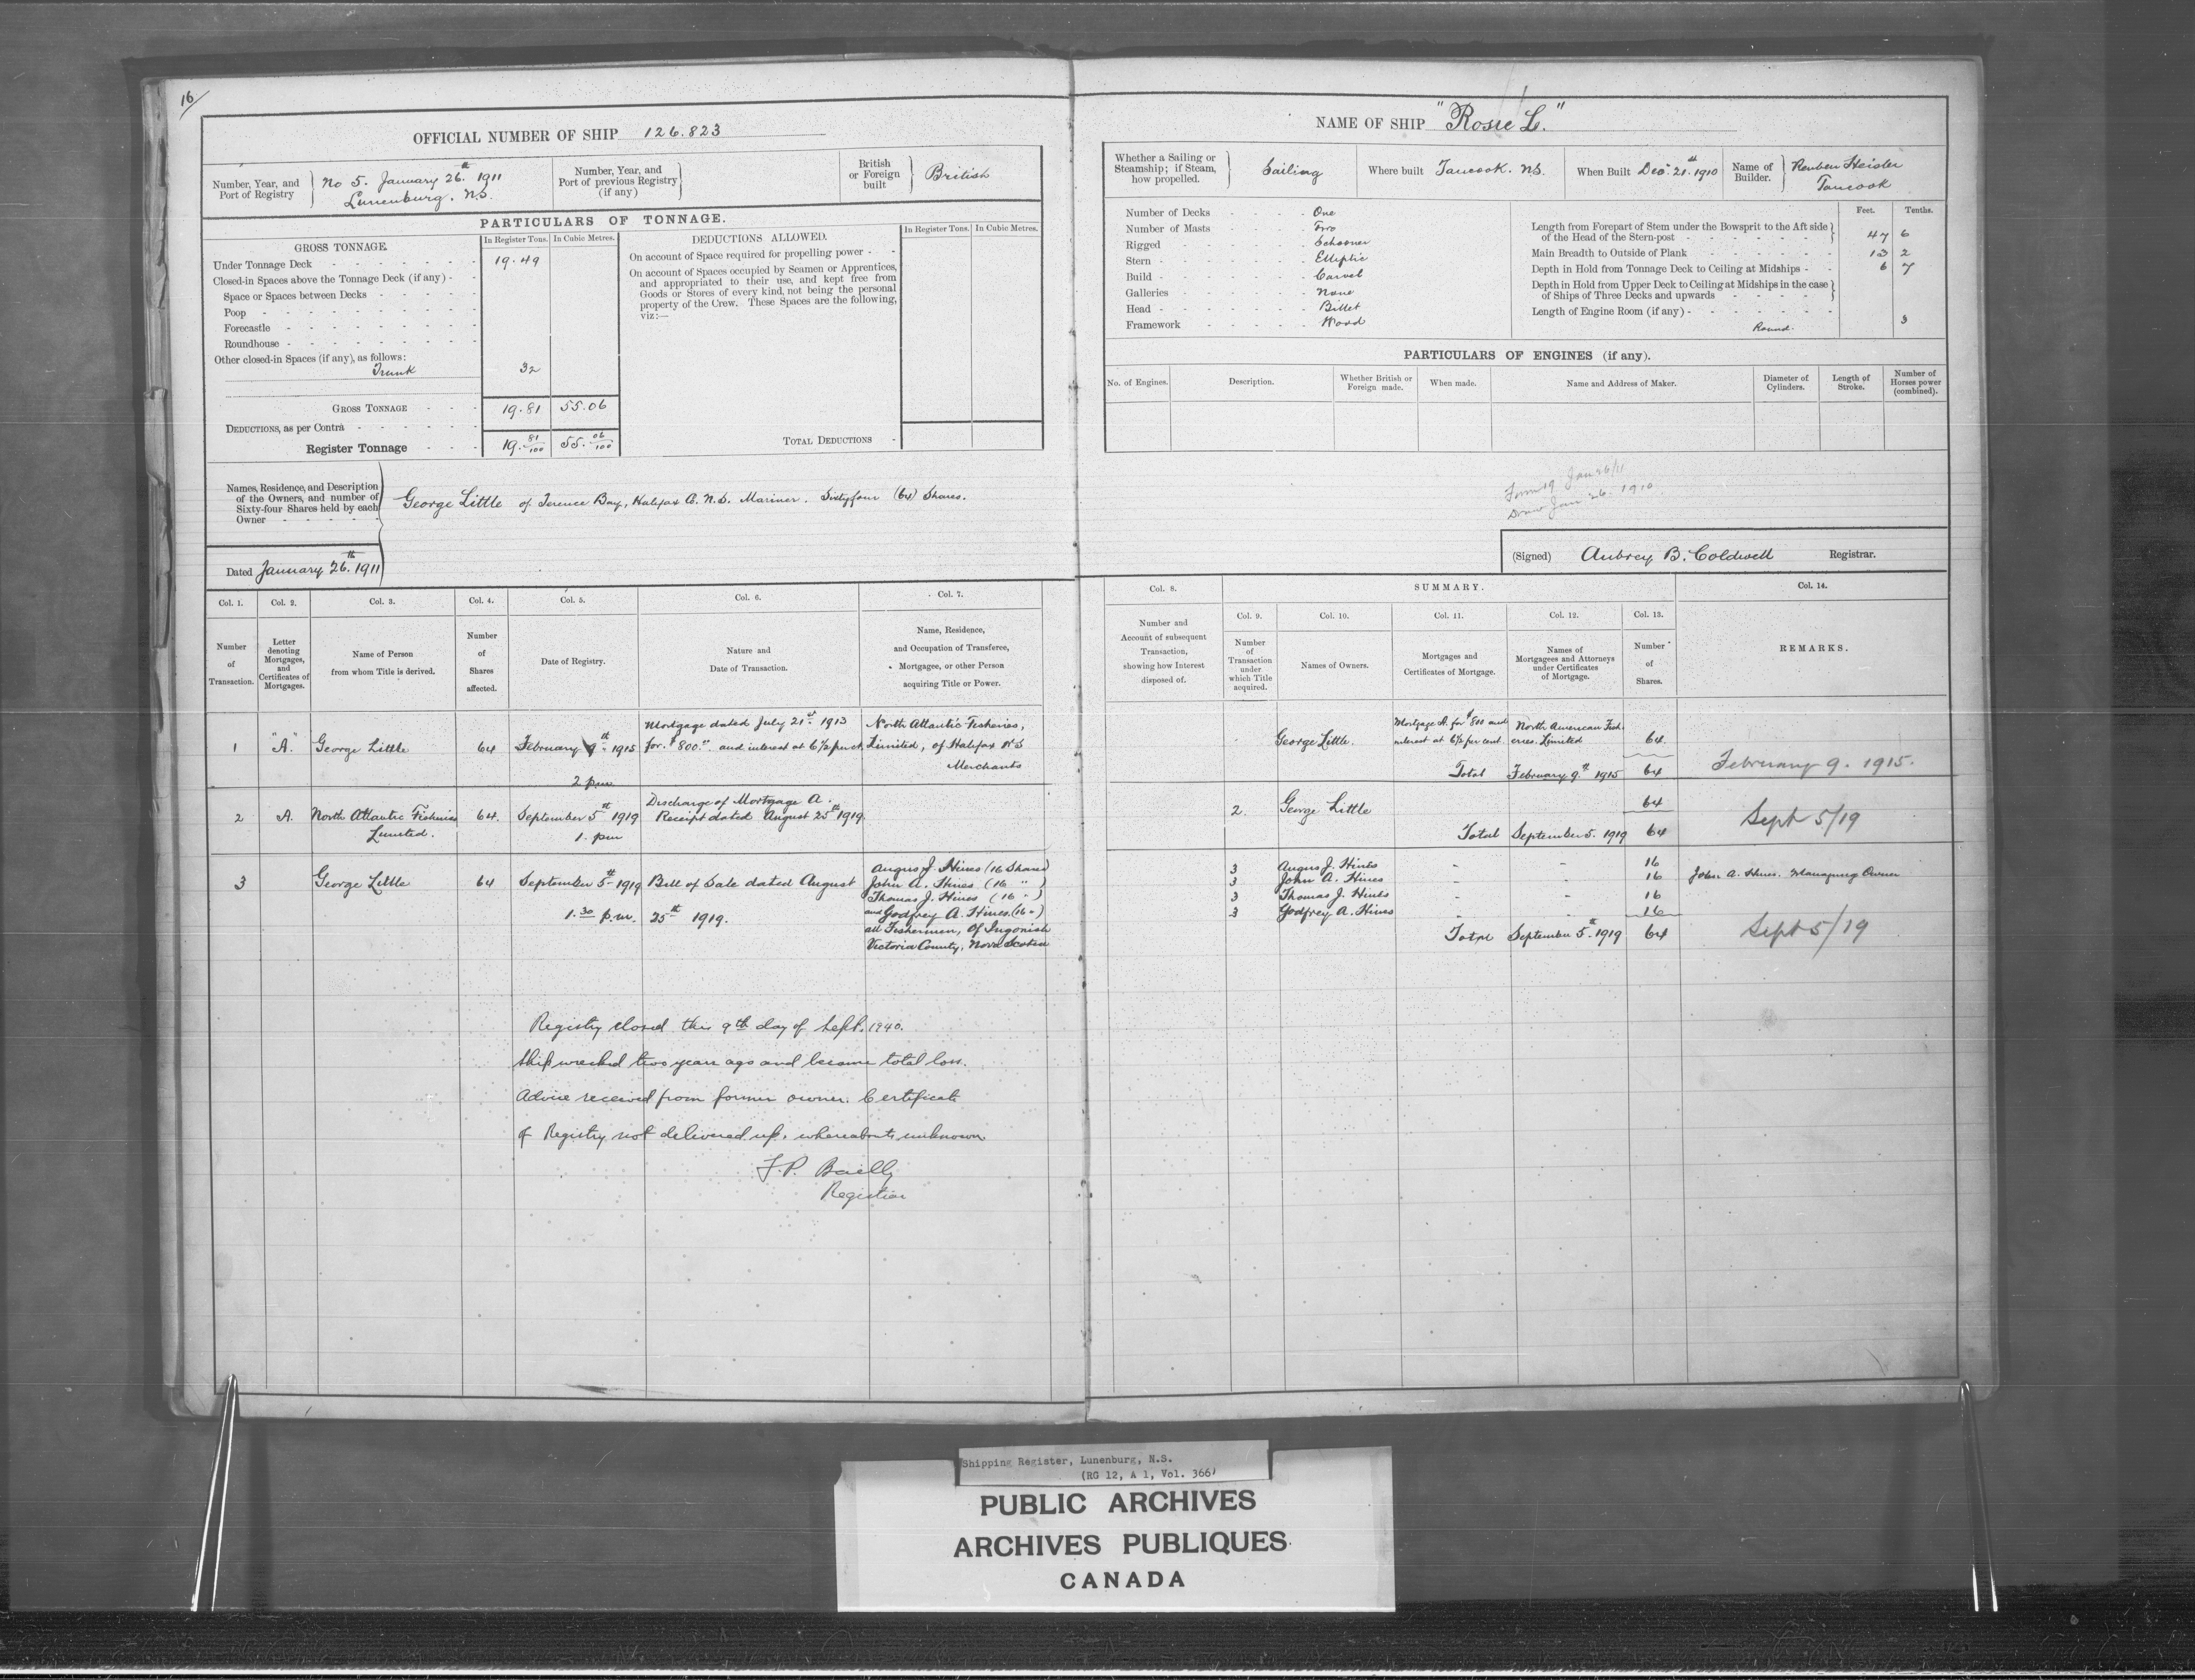 16/
OFFICIAL NUMBER OF SHIP 126.823
Number, Year, and Port of Registry
No 5. January 26.th 1911
Lunenburg. N.S.
Number, Year, and Port of previous Registry (if any)
British or Foreign built
British
PARTICULARS OF TONNAGE.
GROSS TONNAGE.
In Register Tons.
In Cubic Metres.
Under Tonnage Deck 19.49
Closed-in Spaces above the Tonnage Deck (if any)
Space or Spaces between Decks
Poop
Forecastle
Roundhouse
Other closed-in Spaces (if any), as follows:
Trunk 32
GROSS TONNAGE 19.81 55.06
DEDUCTIONS, as per Contra
Register Tonnage 19. 81/100 55. 06/100
DEDUCTIONS ALLOWED.
In Register Tons.
In Cubic Metres.
On account of Space required for propelling power
On account of Spaces occupied by Seamen or Apprentices,
and appropriated to their use, and kept free from
Goods or Stores of every kind, not being the personal
property of the Crew. These Spaces are the following,
viz:—
TOTAL DEDUCTIONS
Names, Residence, and Description
of the Owners, and number of
Sixty-four Shares held by each
Owner
George Little of Terence Bay, Halifax Co. N.S. Mariner. Sixtyfour (64) Shares.
Dated January 26.th 1911
Col. 1.
Col. 2.
Col. 3.
Col. 4.
Col. 5.
Col. 6.
Col. 7.
Number of Transaction.
Letter denoting Mortgages, and Certificates of Mortgages.
Name of Person from whom Title is derived.
Number of Shares affected.
Date of Registry.
Nature and Date of Transaction.
Name, Residence, and Occupation of Transferee, Mortgagee, or other Person acquiring Title or Power.
1 "A." George Little 64 February 9th 1915
2 pm
Mortgage dated July 21st 1913
for $800.00 and interest at 6½ per ct.
North Atlantic Fisheries,
Limited, of Halifax N S
Merchants
2 A. North Atlantic Fisheries
Limited.
64. September 5th 1919
1. pm
Discharge of Mortgage A.
Receipt dated August 25th 1919
3 George Little 64 September 5th 1919
1.30 p.m.
Bill of Sale dated August
25th 1919.
Angus J. Hines (16 Shares)
John A. Hines (16 " )
Thomas J. Hines (16 " )
and Godfrey A. Hines. (16 " )
all Fishermen, Of Ingonish
Victoria County, Nova Scotia
Registry closed this 9th day of Sept. 1940.
Ship wrecked two years ago and became total loss.
Advice received from former owner. Certificate
of Registry not delivered up, whereabouts unknown
F.P. Bailly
Registrar
NAME OF SHIP "Rosie L."
Whether a Sailing or Steamship; if Steam, how propelled.
Sailing
Where built Tancook. N.S.
When Built Dec. 21.st 1910
Name of Builder.
Reuben Heisler
Tancook
Number of Decks One
Number of Masts Two
Rigged Schooner
Stern Elliptic
Build Carvel
Galleries None
Head Billet
Framework Wood
Feet. Tenths.
Length from Forepart of Stem under the Bowsprit to the Aft side
of the Head of the Stern-post 47 6
Main Breadth to Outside of Plank 13 2
Depth in Hold from Tonnage Deck to Ceiling at Midships 6 7
Depth in Hold from Upper Deck to Ceiling at Midships in the case
of Ships of Three Decks and upwards
Length of Engine Room (if any)
Round. 3
PARTICULARS OF ENGINES (if any).
No. of Engines.
Description.
Whether British or Foreign made.
When made.
Name and Address of Maker.
Diameter of Cylinders.
Length of Stroke.
Number of Horses power (combined).
Form 19 Jan 26/11
Jan 26. 1910
(Signed) Aubrey B. Coldwell Registrar.
Col. 8.
SUMMARY.
Col. 14.
Col. 9.
Col. 10.
Col. 11.
Col. 12.
Col. 13.
Number and Account of subsequent Transaction, showing how Interest disposed of.
Number of Transaction under which Title acquired.
Names of Owners.
Mortgages and Certificates of Mortgage.
Names of Mortgagees and Attorneys under Certificates of Mortgage.
Number of Shares.
REMARKS.
George Little.
Mortgage A. for $800 and
interest at 6½ per cent.
North American Fish
eries. Limited
64.
Total February 9.th 1915 64
February 9. 1915.
2. George Little 64
Total September 5. 1919 64
Sept 5/19
3 Angus J. Hines - - 16
3 John A. Hines - - 16
John A. Hines. Managing Owner
3 Thomas J. Hines - - 16
3 Godfrey A. Hines - - 16
Total September 5th 1919 64
Sept 5/19
Shipping Register, Lunenburg, N.S.
(RG 12, A 1, Vol. 366)
PUBLIC ARCHIVES
ARCHIVES PUBLIQUES
CANADA